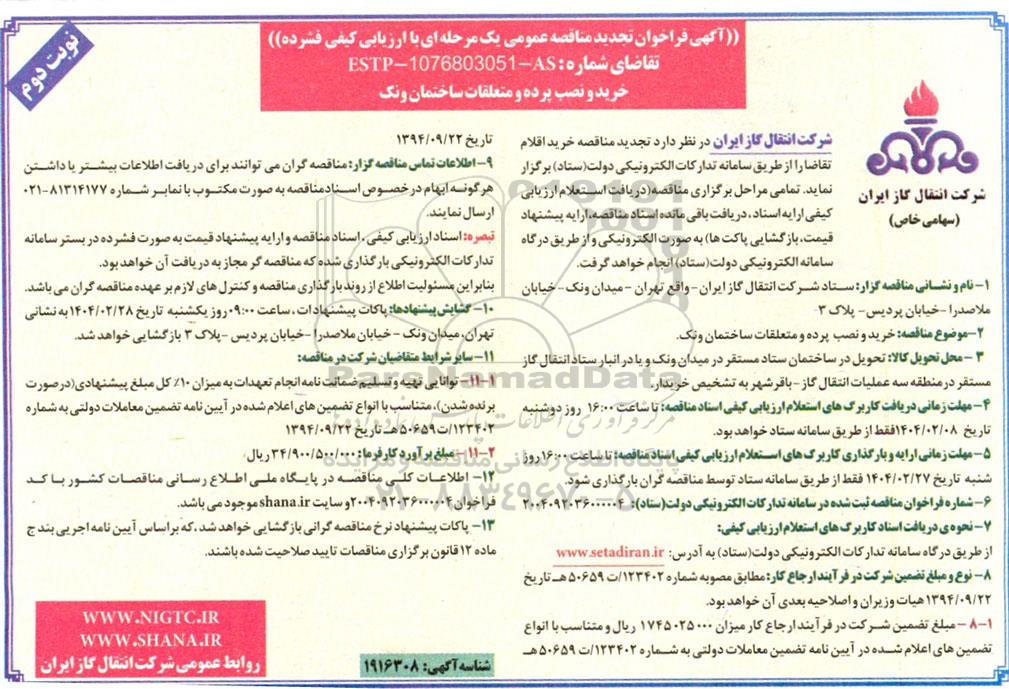 نوبت دوم
((آگهی فراخوان تجدید مناقصه عمومی یک مرحله ای با ارزیابی کیفی فشرده))
تقاضای شماره : ESTP-1076803051-AS
خرید و نصب پرده و متعلقات ساختمان ونک
شرکت انتقال گاز ایران
(سهامی خاص)
شرکت انتقال گاز ایران در نظر دارد تجدید مناقصه خرید اقلام
تقاضا را از طریق سامانه تدارکات الکترونیکی دولت(ستاد) برگزار
نماید. تمامی مراحل برگزاری مناقصه(دریافت استعلام ارزیابی
کیفی ارایه اسناد، دریافت باقی مانده اسناد مناقصه، ارایه پیشنهاد
قیمت، بازگشایی پاکت ها) به صورت الکترونیکی و از طریق درگاه
سامانه الکترونیکی دولت(ستاد) انجام خواهد گرفت.
۱- نام و نشانی مناقصه گزار: ستاد شرکت انتقال گاز ایران - واقع تهران - میدان ونک - خیابان
ملاصدرا - خیابان پردیس - پلاک ۳
۲-موضوع مناقصه: خرید و نصب پرده و متعلقات ساختمان ونک.
۳ - محل تحویل کالا: تحویل در ساختمان ستاد مستقر در میدان ونک و یا در انبار ستاد انتقال گاز
مستقر در منطقه سه عملیات انتقال گاز - باقرشهر به تشخیص خریدار.
۴- مهلت زمانی دریافت کاربرگ های استعلام ارزیابی کیفی اسناد مناقصه: تا ساعت ۱۶:۰۰ روز دوشنبه
تاریخ ۱۴۰۴/۰۲/۰۸ فقط از طریق سامانه ستاد خواهد بود.
۵- مهلت زمانی ارایه و بارگذاری کاربرگ های استعلام ارزیابی کیفی اسناد مناقصه: تا ساعت ۱۶:۰۰ روز
شنبه تاریخ ۱۴۰۴/۰۲/۲۷ فقط از طریق سامانه ستاد توسط مناقصه گران بارگذاری شود.
۶- شماره فراخوان مناقصه ثبت شده در سامانه تدارکات الکترونیکی دولت(ستاد): ۲۰۰۴۰۹۲۰۳۶۰۰۰۰۰۴
۷- نحوه ی دریافت اسناد کاربرگ های استعلام ارزیابی کیفی:
از طریق درگاه سامانه تدارکات الکترونیکی دولت(ستاد) به آدرس: www.setadiran.ir
۸- نوع و مبلغ تضمین شرکت در فرآیند ارجاع کار: مطابق مصوبه شماره ۱۲۳۴۰۲/ت ۵۰۶۵۹هـ تاریخ
۱۳۹۴/۰۹/۲۲ هیات وزیران و اصلاحیه بعدی آن خواهد بود.
۸-۱ - مبلغ تضمین شرکت در فرآیند ارجاع کار میزان ۱۷۴۵۰۲۵۰۰۰ ریال و متناسب با انواع
تضمین های اعلام شده در آیین نامه تضمین معاملات دولتی به شماره ۱۲۳۴۰۲/ت ۵۰۶۵۹ هـ
تاریخ ۱۳۹۴/۰۹/۲۲
۹- اطلاعات تماس مناقصه گزار: مناقصه گران می توانند برای دریافت اطلاعات بیشتر یا داشتن
هرگونه ابهام در خصوص اسناد مناقصه به صورت مکتوب با نمابر شماره ۸۱۳۱۴۱۷۷-۰۲۱
ارسال نمایند.
تبصره: اسناد ارزیابی کیفی، اسناد مناقصه و ارایه پیشنهاد قیمت به صورت فشرده در بستر سامانه
تدارکات الکترونیکی بارگذاری شده که مناقصه گر مجاز به دریافت آن خواهد بود.
بنابراین مسئولیت اطلاع از روند بارگذاری مناقصه و کنترل های لازم بر عهده مناقصه گران می باشد.
۱۰- گشایش پیشنهادها: پاکات پیشنهادات، ساعت ۰۹:۰۰ روز یکشنبه تاریخ ۱۴۰۴/۰۲/۲۸ به نشانی
تهران، میدان ونک - خیابان ملاصدرا - خیابان پردیس - پلاک ۳ بازگشایی خواهد شد.
۱۱- سایر شرایط متقاضیان شرکت در مناقصه:
۱۱-۱- توانایی تهیه و تسلیم ضمانت نامه انجام تعهدات به میزان ۱۰٪ کل مبلغ پیشنهادی(در صورت
برنده شدن)، متناسب با انواع تضمین های اعلام شده در آیین نامه تضمین معاملات دولتی به شماره
۱۲۳۴۰۲/ت ۵۰۶۵۹هـ تاریخ ۱۳۹۴/۰۹/۲۲
۱۱-۲- مبلغ برآورد کارفرما: ۳۴/۹۰۰/۵۰۰/۰۰۰ ریال
۱۲- اطلاعات کلی مناقصه در پایگاه ملی اطلاع رسانی مناقصات کشور با کد
فراخوان ۲۰۰۴۰۹۲۰۳۶۰۰۰۰۰۴ و سایت shana.ir موجود می باشد.
۱۳- پاکات پیشنهاد نرخ مناقصه گرانی بازگشایی خواهد شد، که بر اساس آیین نامه اجریی بند ج
ماده ۱۲ قانون برگزاری مناقصات تایید صلاحیت شده باشند.
WWW.NIGTC.IR
WWW.SHANA.IR
روابط عمومی شرکت انتقال گاز ایران
شناسه آگهی: ۱۹۱۶۳۰۸
ParsNamadData
پایگاه اطلاع رسانی مناقصه و مزایده
۰۲۱-۸۸۳۴۹۶۷۰-۵